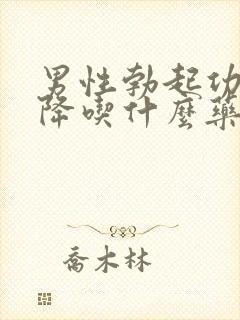 男性勃起功
降喫什麼藥
喬木林